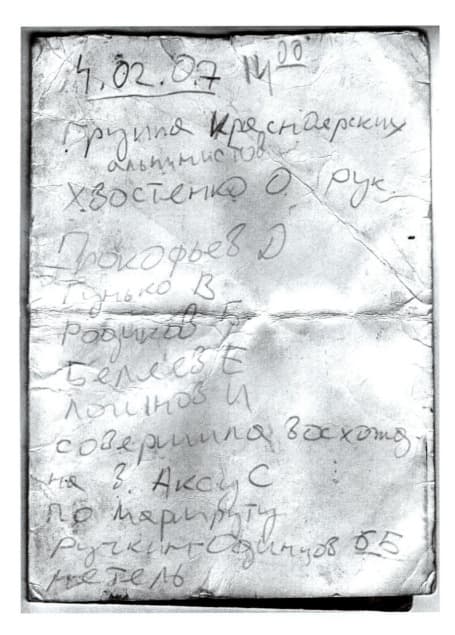 4.02.07 14⁰⁰
Группа Красноярских
альпинистов
Хвостенко О. рук.
Прокофьев Д
Гунько В
Родиков Б
Беляев Е
Логинов И
совершила восхожд.
на В. Аксу С
по маршруту
Ручкин-Одинцов 6Б
метель